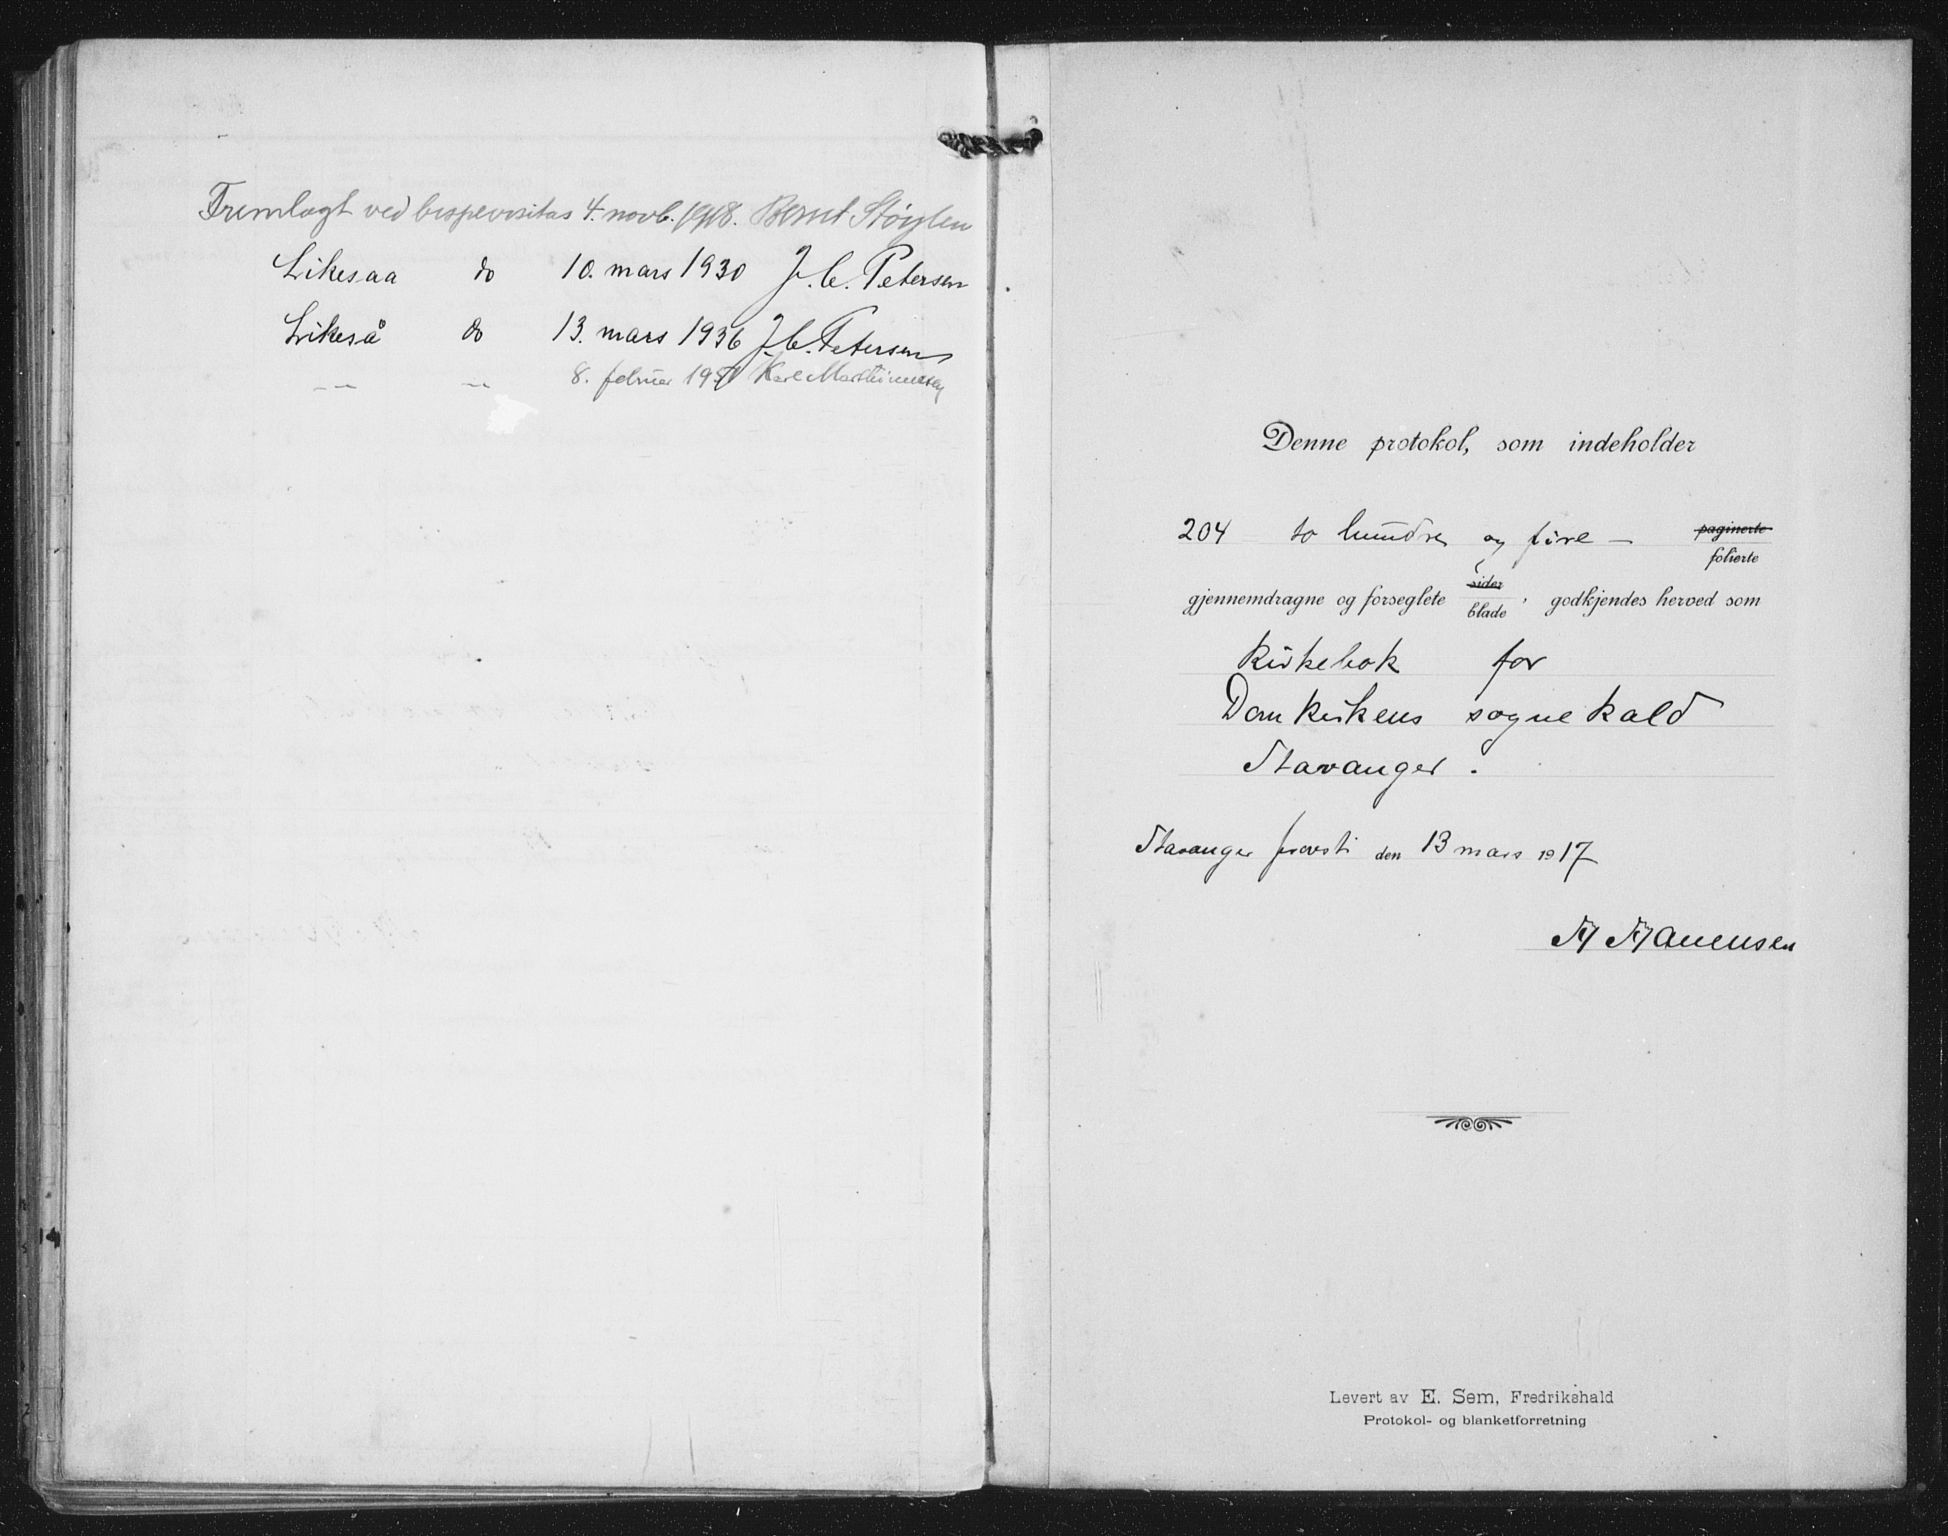 Fremlagt ved bispevisitas 4. novb. 1918. Bernt Støylen
Likesaa do 10. mars 1930 J. C. Petersen
Likeså do 13. mars 1936 J. C. Petersen
— — — — 8. februar Karl Marthinussen
Denne protokol, som indeholder
204 to hundre og fire — paginerte
folierte
gjennemdragne og forseglete sider
blade, godkjendes herved som
Kirkebok for
Domkirkens sognekald
Stavanger.
Stavanger provsti den 13 mars 1917
Levert av E. Sem, Fredrikshald
Protokol- og blanketforretning